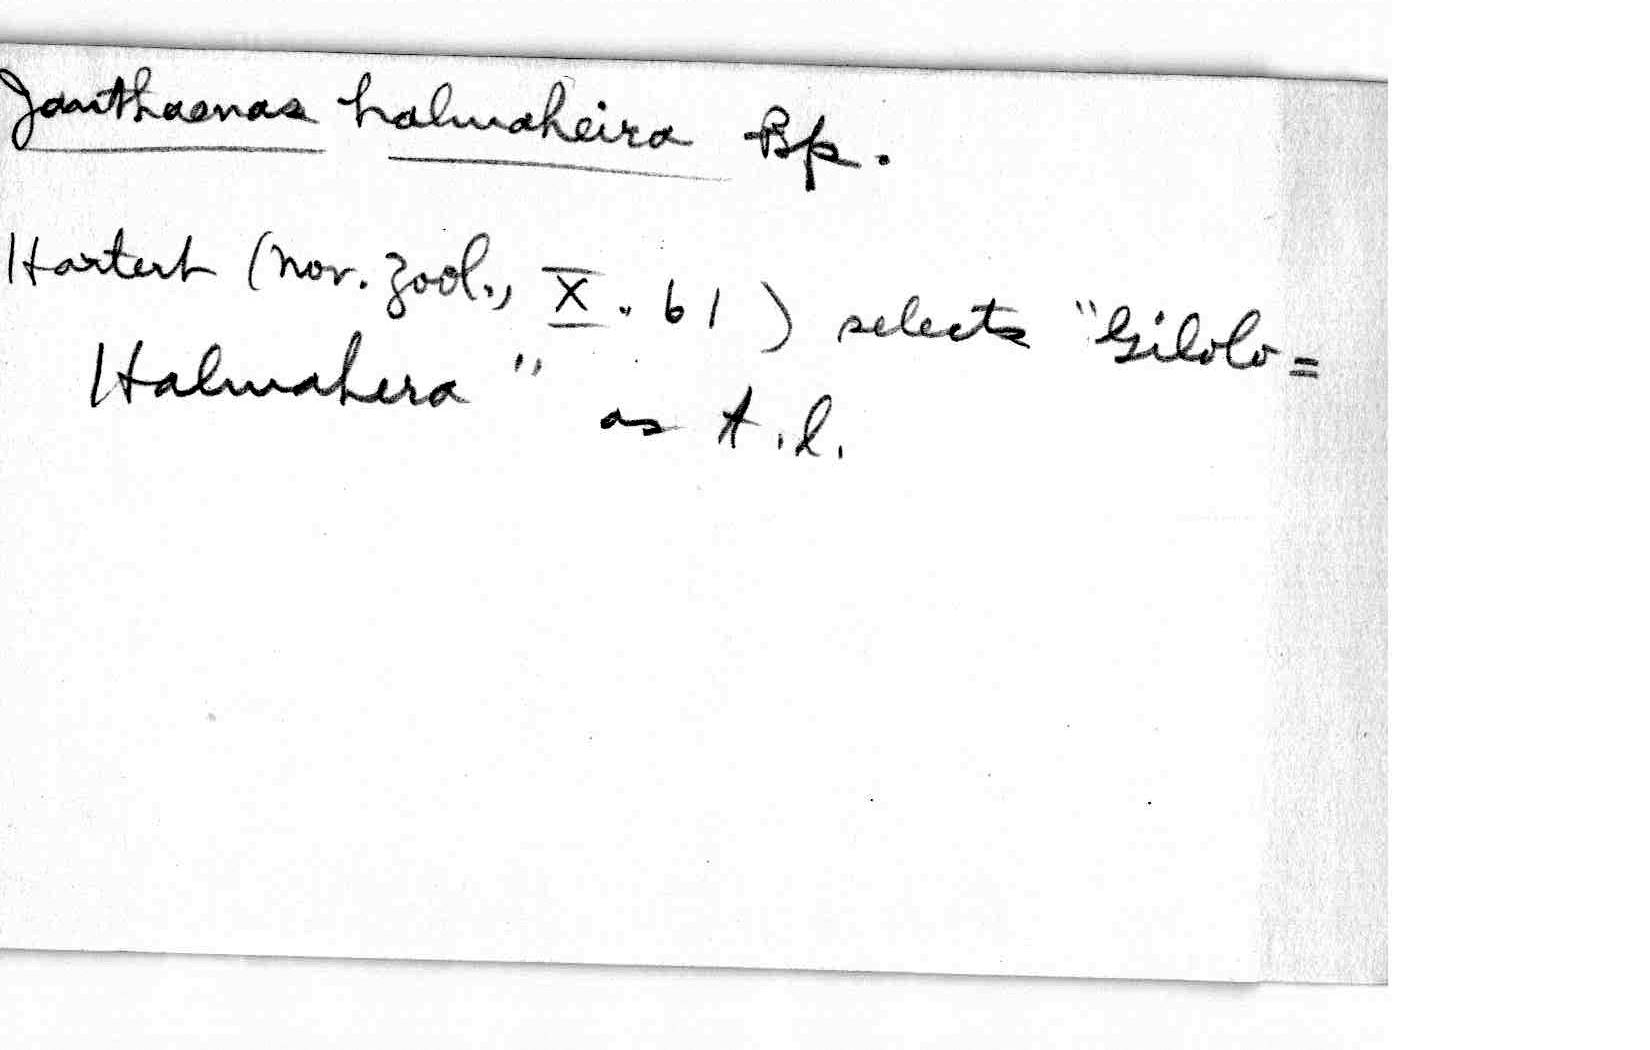 Janthaenas halmaheira Bp.
Hartert (Nov. Zool., X. 61) selects "Gilolo =
Halmahera" as t.l.